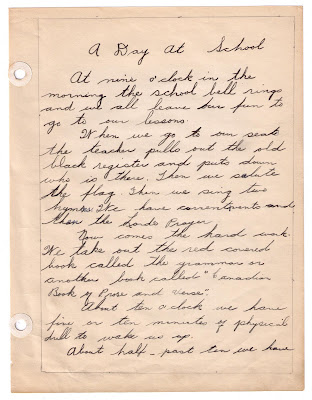 A Day At School
At nine o'clock in the
morning the school bell rings
and we all leave our fun to
go to our lessons.
When we go to our seats
the teacher pulls out the old
black register and puts down
who is there. Then we salute
the flag. Then we sing two
hymns. We have commentments and
then the Lords Prayer.
Now comes the hard work.
We take out the red covered
book called The grammar or
another book called "Canadian
Book of Prose and Verse".
About ten o'clock we have
five or ten minutes of physical
drill to wake us up.
About half-past ten we have